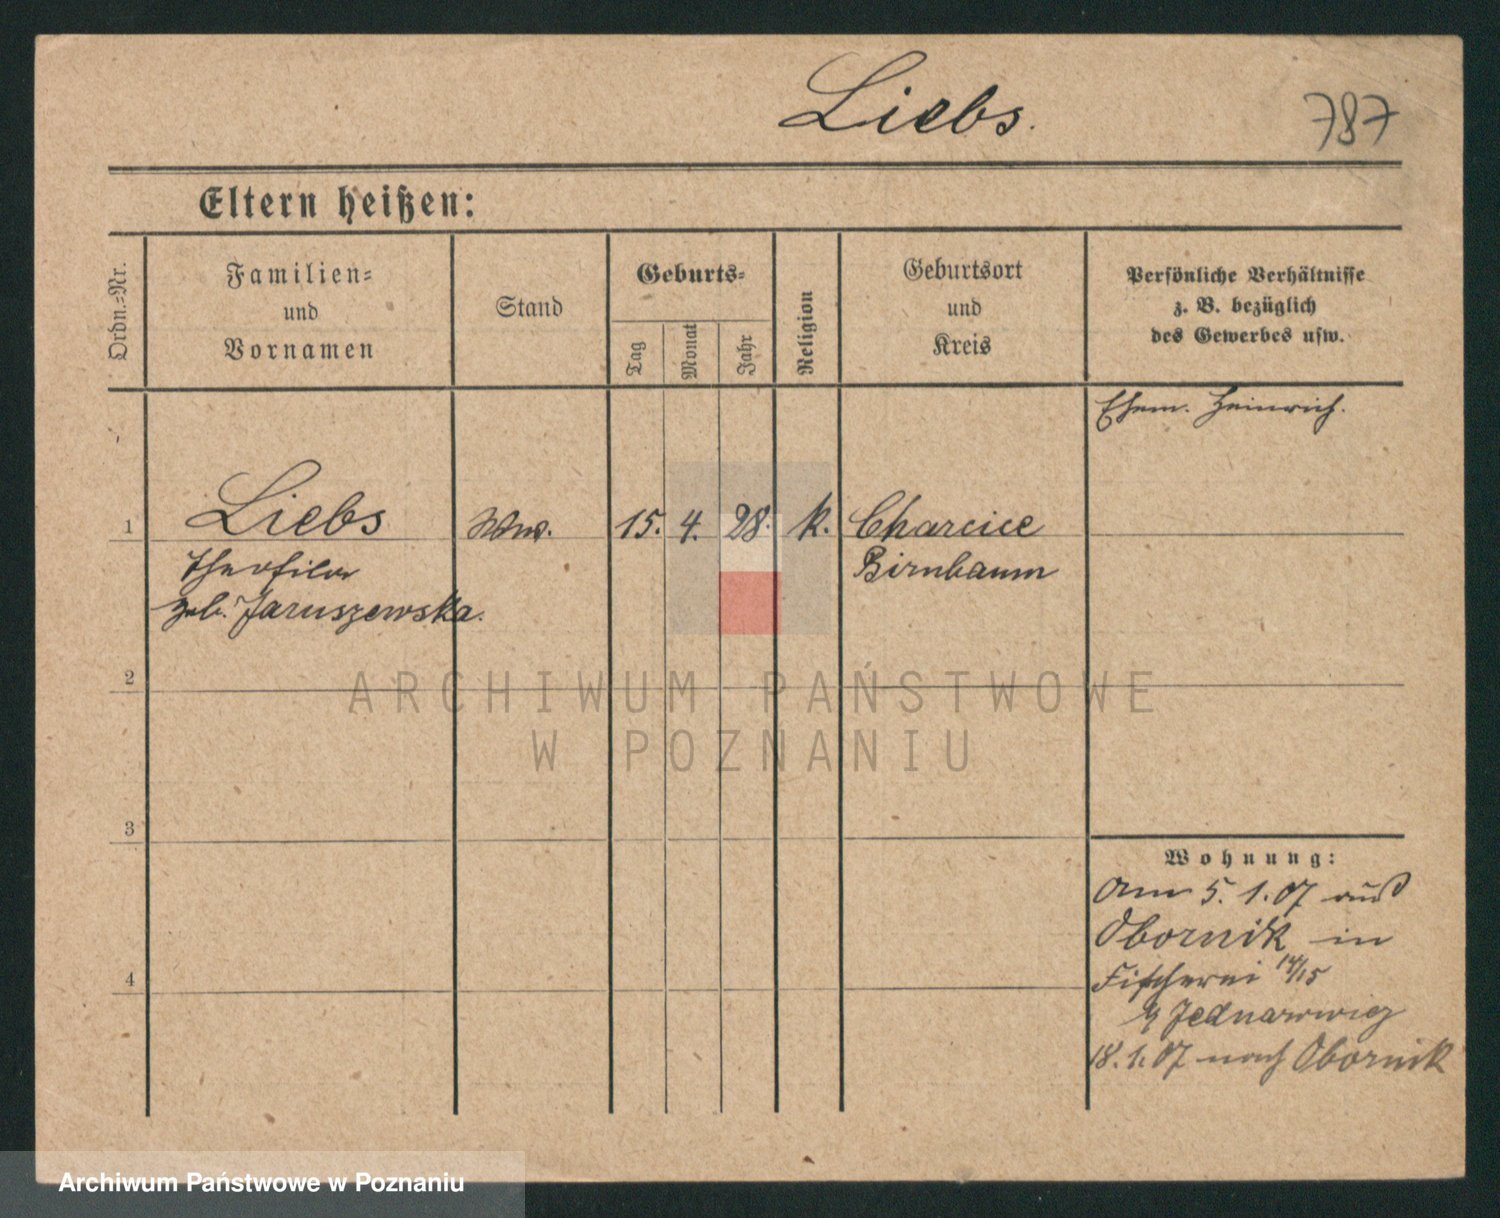 Liebs.
787
Eltern heißen:
Ordn.-Nr.
Familien-
und
Vornamen
Stand
Geburts-
Tag
Monat
Jahr
Religion
Geburtsort
und
Kreis
Persönliche Verhältnisse
z. B. bezüglich
des Gewerbes usw.
Ehem. Heinrich.
1
Liebs
Wwe.
15. 4. 28.
k.
Charcice
Theofila
Birnbaum
geb. Jaruszewska.
2
ARCHIWUM PAŃSTWOWE
W POZNANIU
3
Wohnung:
Am 5. 1. 07 aus
Obornik in
Fischerei 14/15
4
18. 1. 07 nach Obornik
Archiwum Państwowe w Poznaniu